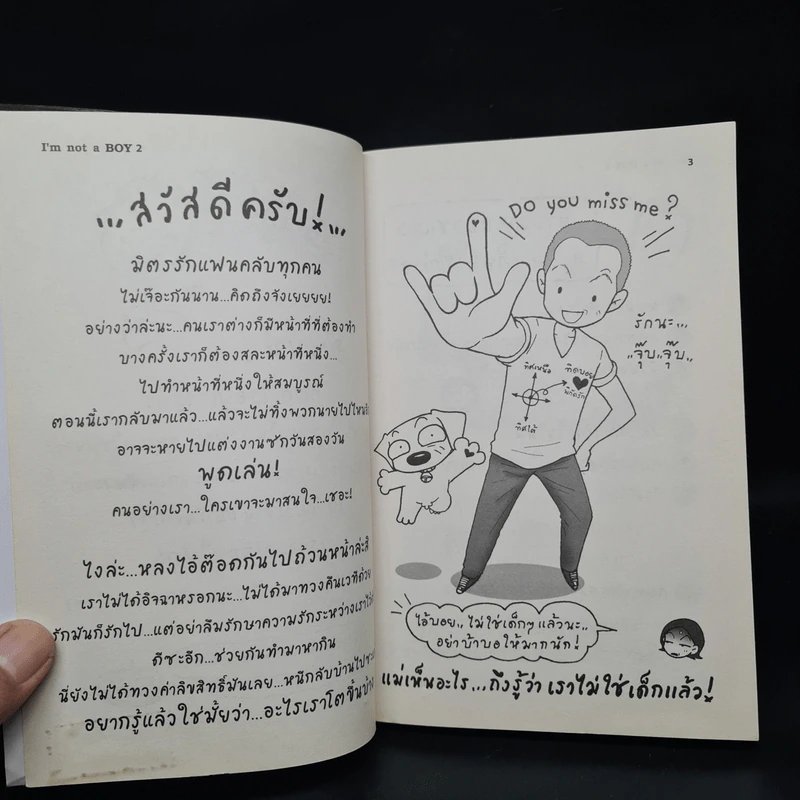 I'm not a BOY 2
...สวัสดีครับ!...
มิตรรักแฟนคลับทุกคน
ไม่เจ๊อะกันนาน...คิดถึงจังเยยยย!
อย่างว่าล่ะนะ...คนเราต่างก็มีหน้าที่ที่ต้องทำ
บางครั้งเราก็ต้องสละหน้าที่หนึ่ง...
ไปทำหน้าที่หนึ่งให้สมบูรณ์
ตอนนี้เรากลับมาแล้ว...แล้วจะไม่ทิ้งพวกนายไปไหน
อาจจะหายไปแต่งงานซักวันสองวัน
พูดเล่น!
คนอย่างเรา...ใครเขาจะมาสนใจ...เชอะ!
ไงล่ะ...หลงไอ้ต๊อดกันไปถ้วนหน้าล่ะสิ
เราไม่ได้อิจฉาหรอกนะ...ไม่ได้มาทวงคืนเวทีด้วย
รักมันก็รักไป...แต่อย่าลืมรักษาความรักระหว่างเรา
ดีซะอีก...ช่วยกันทำมาหากิน
นี่ยังไม่ได้ทวงค่าลิขสิทธิ์มันเลย...หนีกลับบ้านไป
อยากรู้แล้วใช่มั้ยว่า...อะไรเราโตขึ้นบ้าง
3
Do you miss me?
รักนะ...
"จุ๊บ จุ๊บ"
ทิศเหนือ
ทิศบอย
พิกัดรัก
ทิศใต้
ไอ้บอย.. ไม่ใช่เด็กๆ แล้วนะ..
อย่าบ้าบอให้มากนัก!
แม่เห็นอะไร...ถึงรู้ว่า เราไม่ใช่เด็กแล้ว!